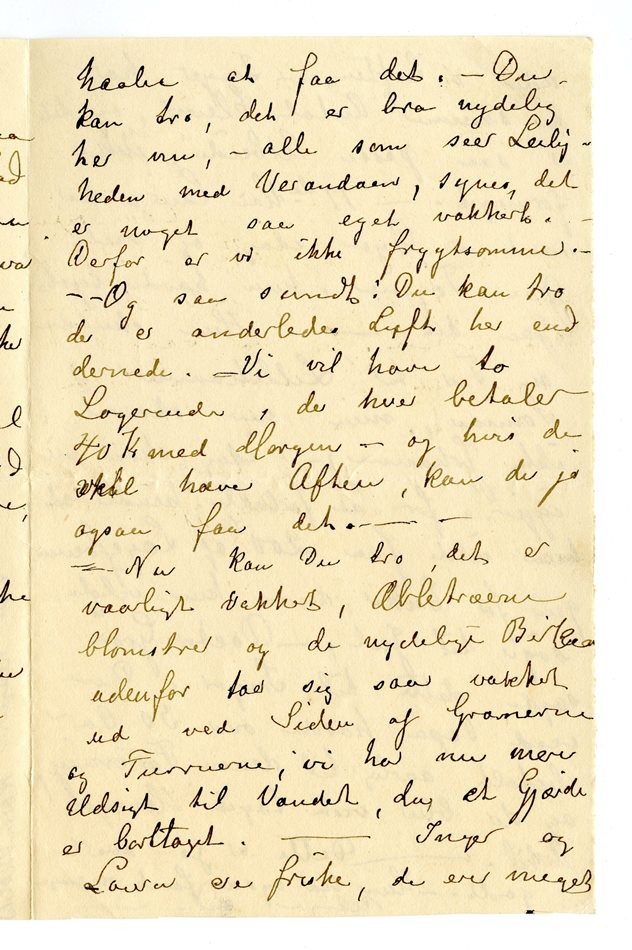 haabe at faa det. – Du
kan tro, det er bra nydelig
her nu, – alle som seer Leilig-
heden med Verandaen, synes, det
er noget saa eget vakkert. –
Derfor er vi ikke frygtsomme. –
– – Og saa sundt! Du kan tro
der er anderledes Luft her end
dernede. – Vi vil have to
Logerende, der hver betaler
40 Kr med Morgen – og hvis de
vil have Aften, kan de jo
ogsaa faa det. – – –
= Nu kan Du tro, det er
vaarligt vakkert, Æbletræerne
blomstrer og de nydelige Birke
udenfor tar sig saa vakkert
ud ved Siden af Granerne
og Furruerne; vi har nu mere
Udsigt til Vandet, da et Gjærde
er borttaget. — Inger og
Laura ere friske, de ere meget